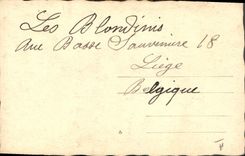 Les Blondinis
Rue Basse Sauvenière 18
Liège
Belgique